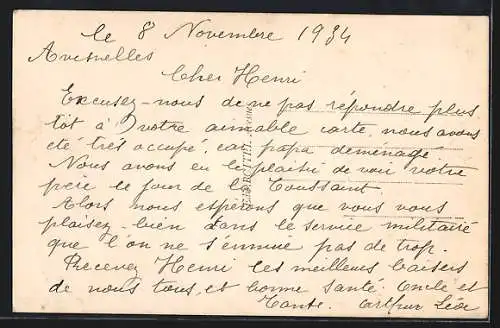 le 8 Novembre 1934
Avesnelles
Cher Henri
Excusez-nous de ne pas répondre plus
tôt à votre aimable carte, nous avons
été très occupé, car papa déménagé.
Nous avons eu le plaisir de voir votre
père le jour de la Toussaint.
Alors nous espérons que vous vous
plaisez-bien dans le service militaire
que l'on ne s'ennuie pas de trop.
Recevez Henri les meilleurs baisers
de nous tous, et bonne santé. Oncle et
Tante. Arthur Léa